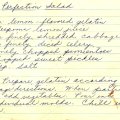 Perfection Salad
lemon flavored gelatin
lemon juice
finely shredded cabbage
finely diced celery
chopped pimientos
chopped sweet pickles
salt
Prepare gelatin according
directions. When partly
add vegetables. Pour
individual molds. Chill